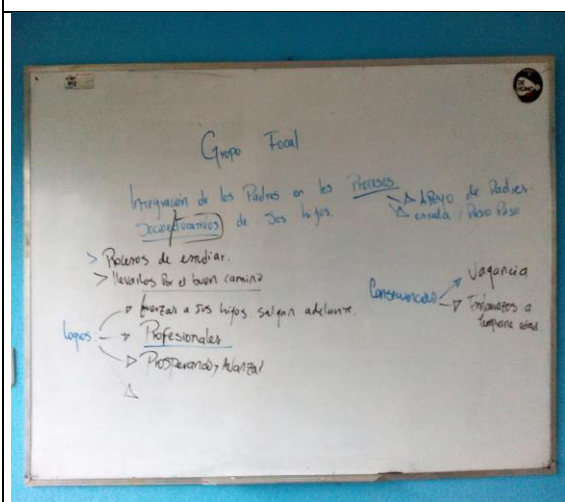 Grupo Focal
Integración de los Padres en los Procesos
Socioeducativos de sus hijos.
→ Apoyo de Padres.
escuela, Paso Paso
> Procesos de estudiar.
> llevarlos por el buen camino
logros:
→ forzar a sus hijos salgan adelante.
→ Profesionales
→ Prosperando, Avanzar
Consecuencias
→ vagancia
→ Embarazos a
temprana edad
DE
HUMO